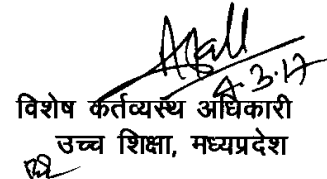 4.3.17
विशेष कर्तव्यस्थ अधिकारी
उच्च शिक्षा, मध्यप्रदेश